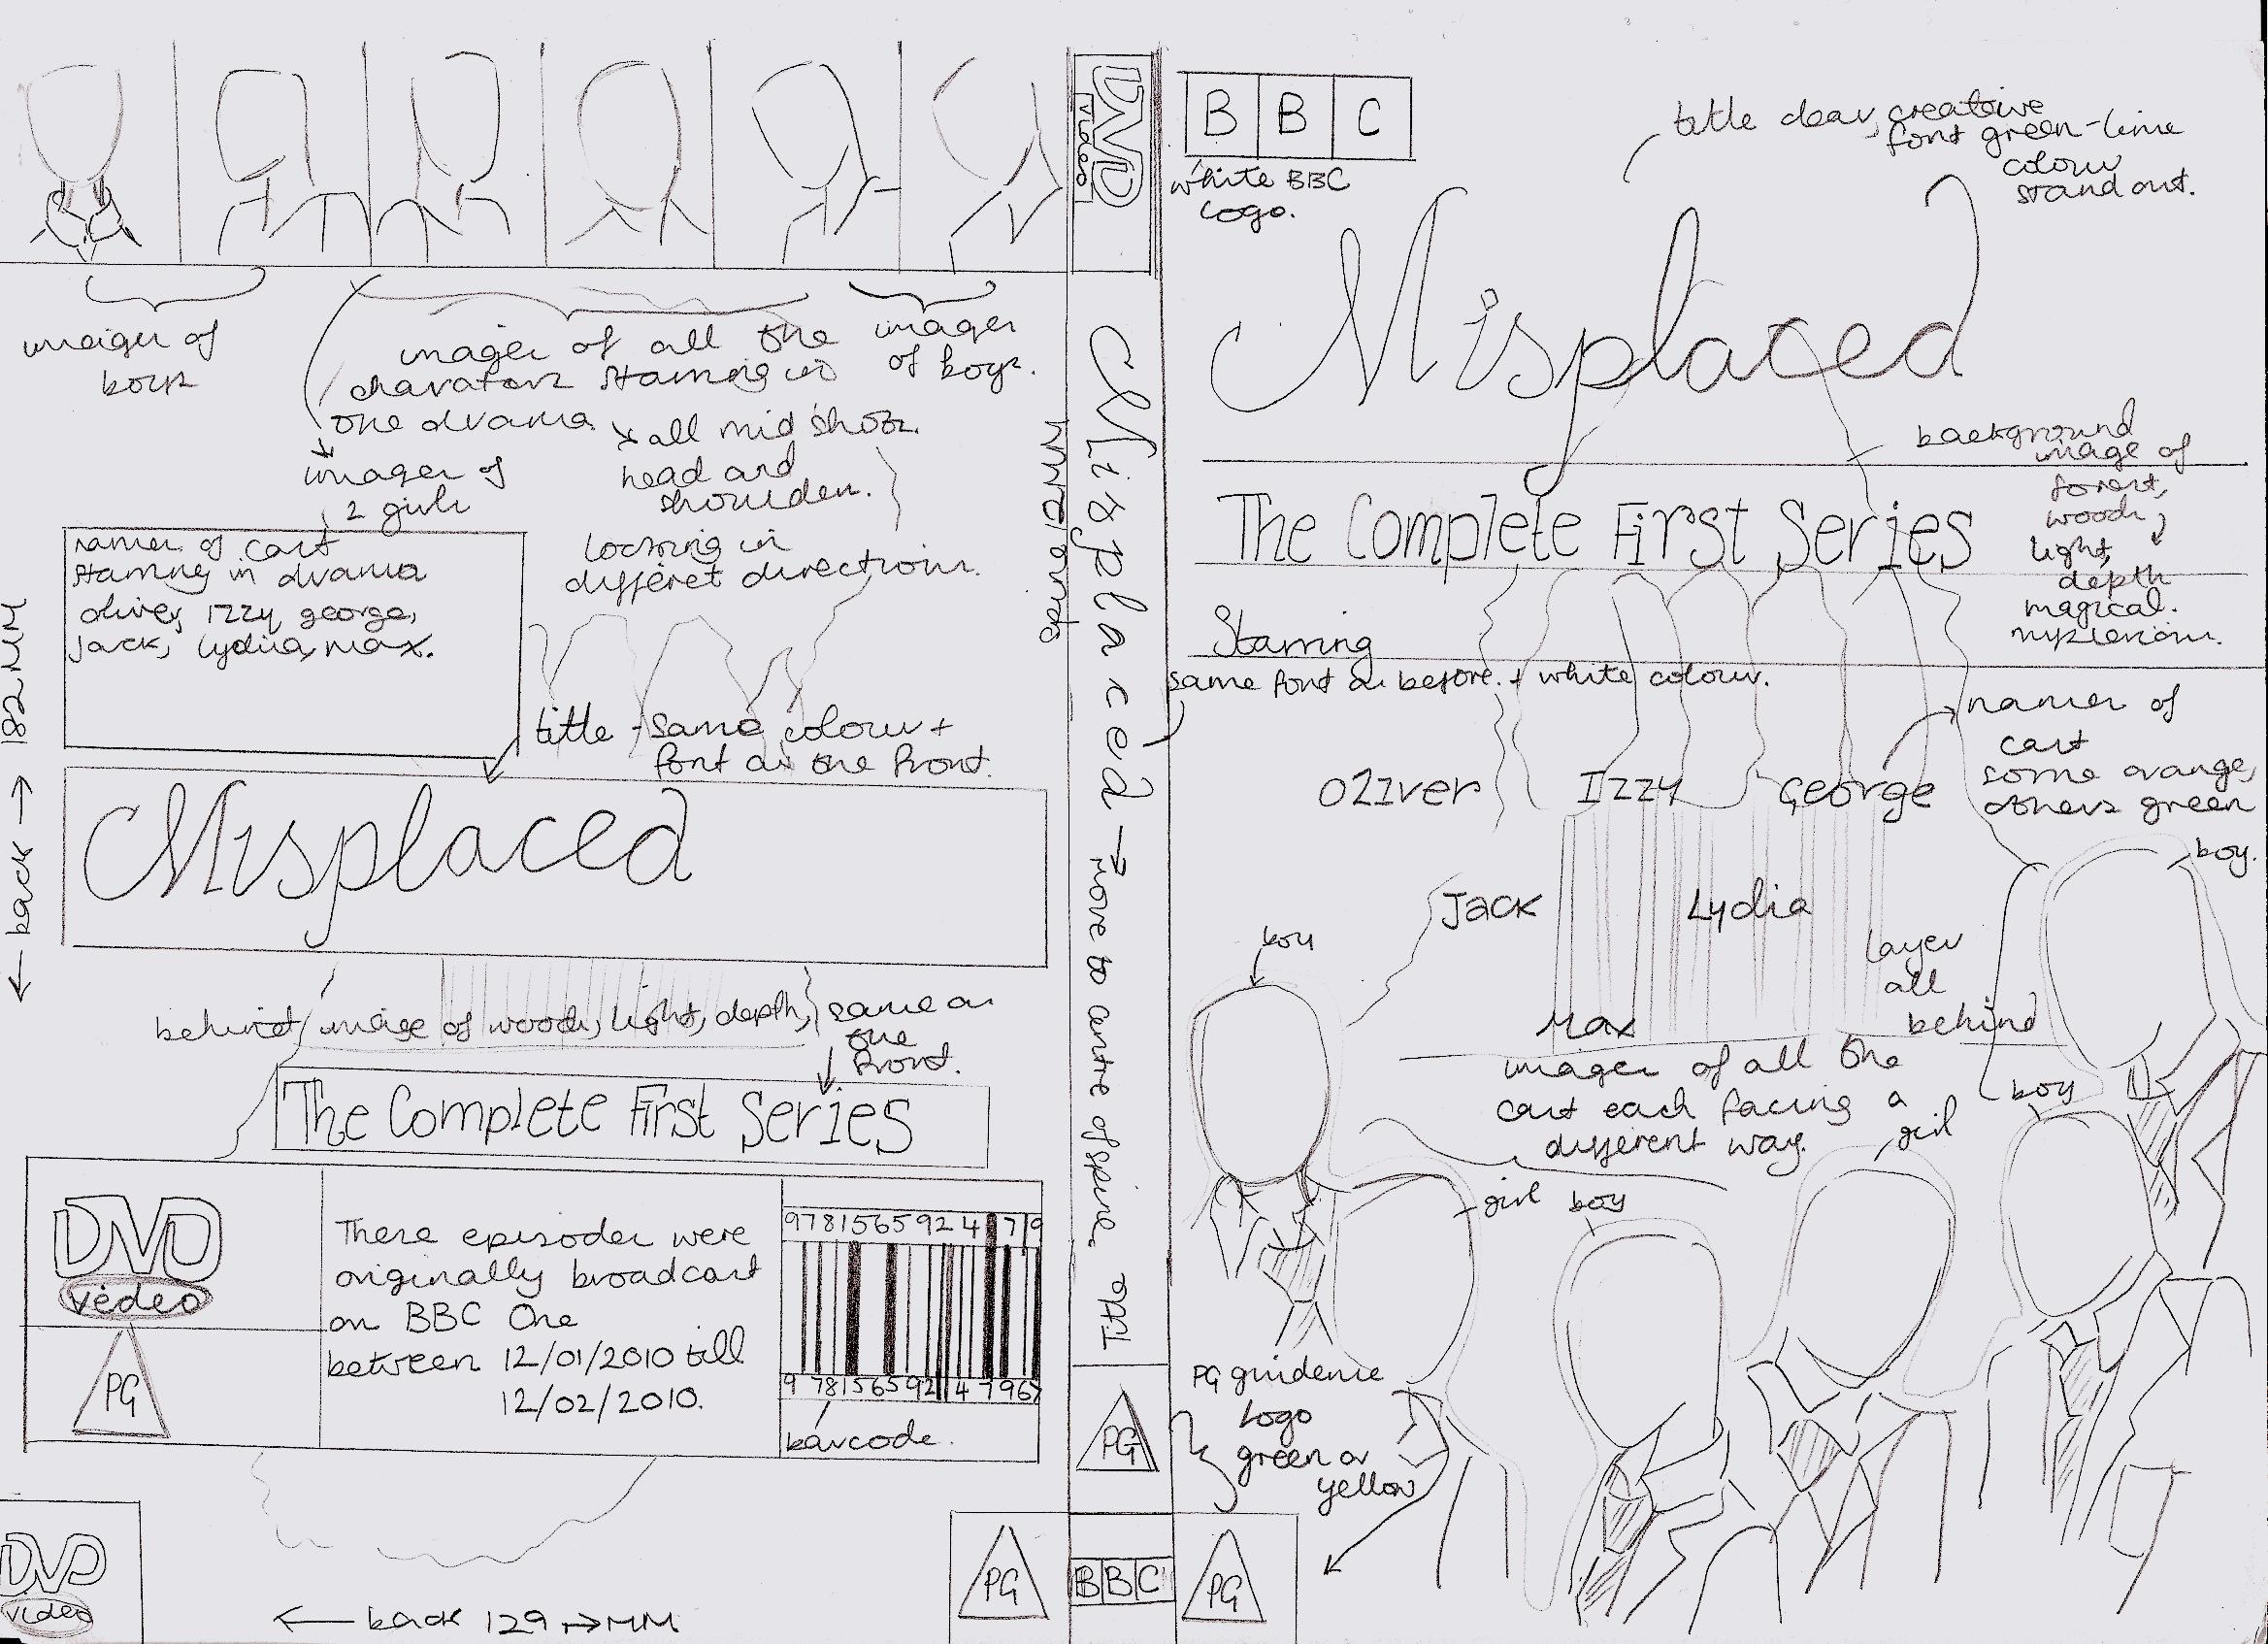 images of
boys
images of all the
charators starring in
the drama.
all mid shots.
head and
shoulders.
looking in
differet directions.
images
of boys.
images of
2 girls
names of cast
starring in drama
oliver, Izzy, george,
Jack, Lydia, max.
title - same colour +
font as the front.
Misplaced
behind image of woods, light, depth, same as
the
front.
The Complete First Series
DVD
video
PG
These episodes were
originally broadcast
on BBC One
between 12/01/2010 till
12/02/2010.
barcode.
← back → 182MM
DVD
video
← back 129 → MM
PG
DVD
video
spine 12MM
Misplaced → move to centre of spine.
PG
BBC
BBC
white BBC
logo.
title clear, creative
font green-lime
colour
stand out.
Misplaced
background
image of
forest,
woods,
light,
depth
magical.
mysterious.
The Complete First Series
Starring
same font as before. + white colour.
names of
cast
some orange,
others green
Oliver Izzy George
Jack Lydia
Max
layer
all
behind
images of all the
cast each facing a
different way.
boy
girl
boy
girl
boy
boy.
PG guidence
logo
green or
yellow
PG